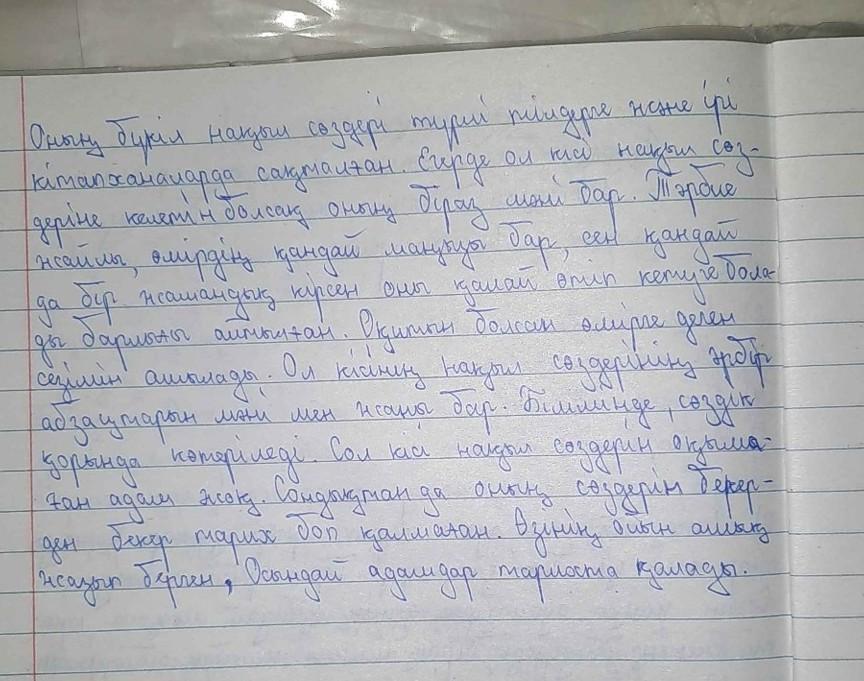 Оның бүкіл нақыл сөздері түрлі тілдерге және ірі
кітапханаларда сақталған. Егерде ол кісі нақыл сөз-
деріне келетін болсақ оның біраз мәні бар. Тәрбие
жайлы, өмірдің қандай маңызы бар, сен қандай
да бір жамандық кірсең оны қалай өтіп кетуге бола-
ды барлығы айтылған. Оқитын болсаң өмірге деген
сезімің ашылады. Ол кісінің нақыл сөздерінің әрбір
абзацтарын мәні мен жаны бар. Білімінде, сөздік
қорында көтеріледі. Сол кісі нақыл сөздерін оқыма-
ған адам жоқ. Сондықтан да оның сөздерін бекер-
ден бекер тарих боп қалмаған. Өзінің ойын ашық
жазып берген, Осындай адамдар тарихта қалады.